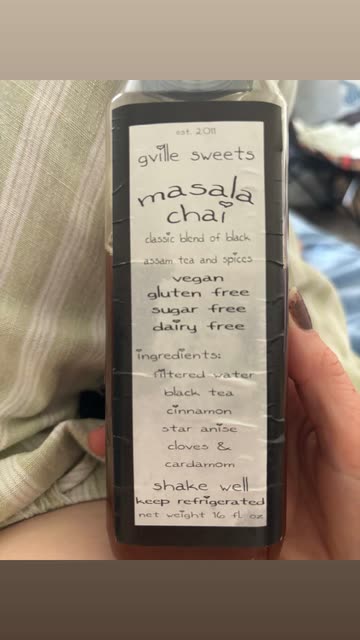 est. 2011
gville sweets
masala
chai
classic blend of black
assam tea and spices
vegan
gluten free
sugar free
dairy free
ingredients:
filtered water
black tea
cinnamon
star anise
cloves &
cardamom
shake well
keep refrigerated
net weight 16 fl oz